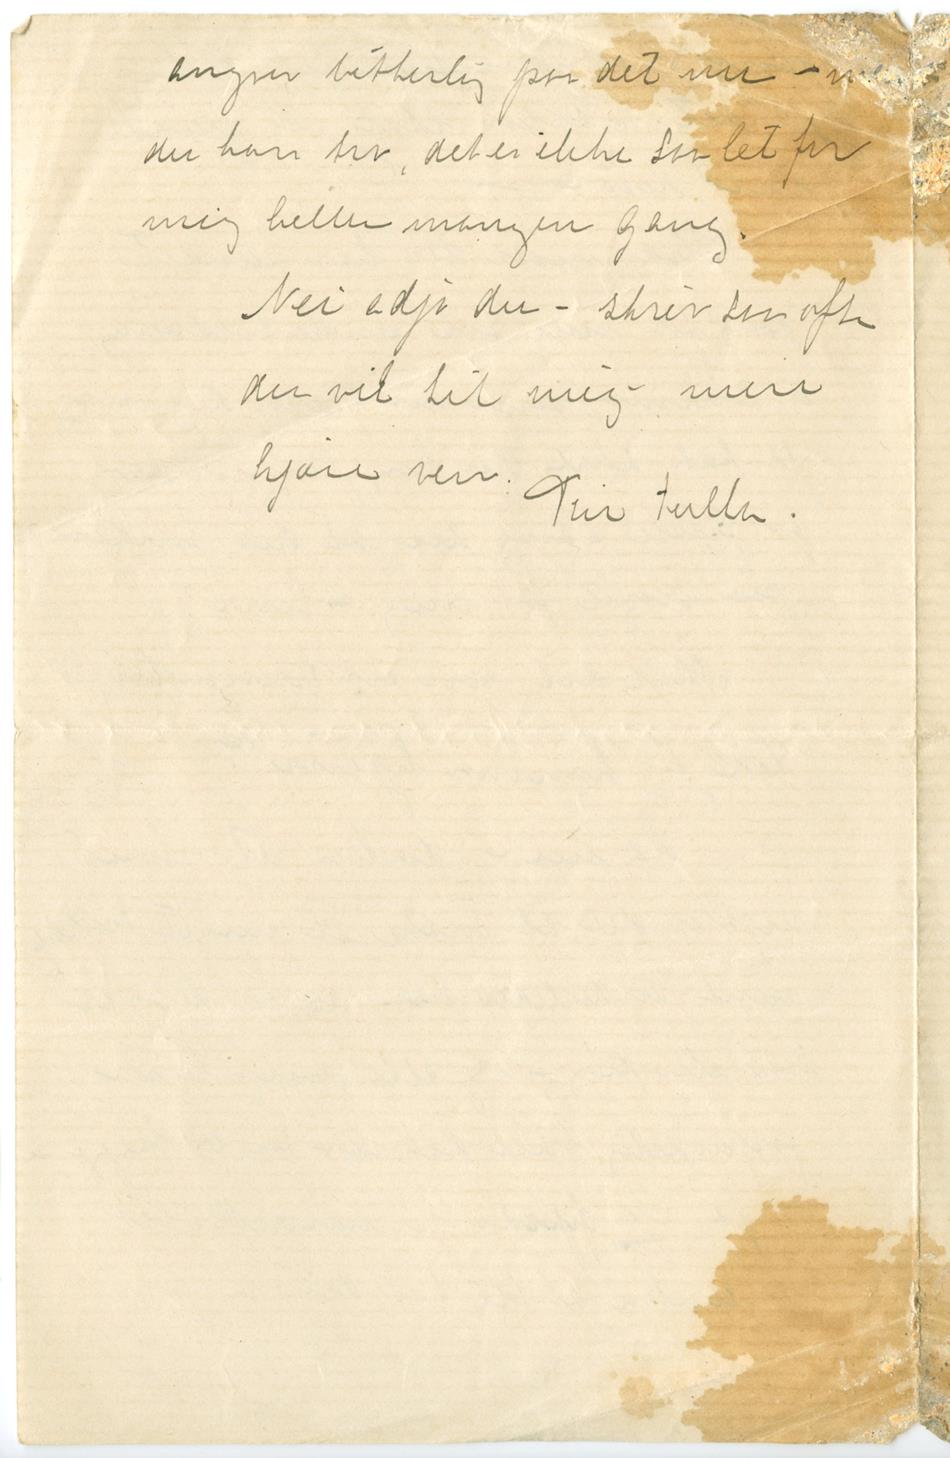 angrer bitterlig paa det nu – men
du kan tro, det er ikke saa let for
mig heller mangen Gang.
Nei adjø du – skriv saa ofte
du vil til mig min
kjære ven.
Din Tulla.